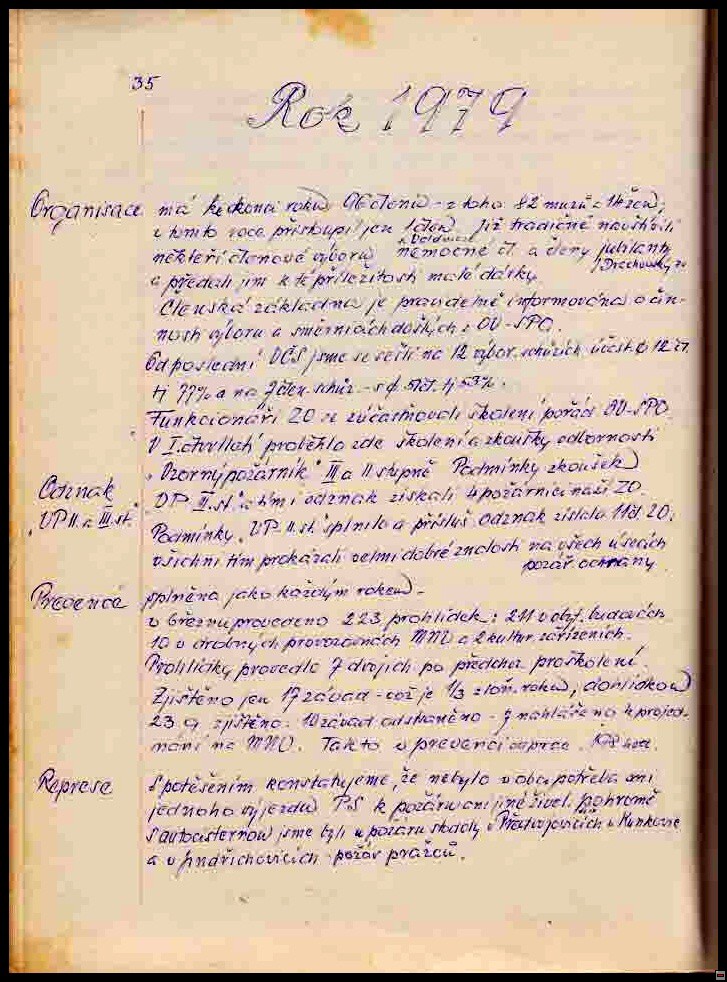 35
Rok 1979
Organisace má ke konci roku 96 členů - z toho 82 mužů a 14 žen,
v tomto roce přistoupil jen 1 člen. Již tradičně navštívili
někteří členové výboru nemocné čl. a členy jubilanty
a předali jim k té příležitosti malé dárky.
Členská základna je pravidelně informována o čin-
nosti výboru a směrnicích došlých z OV-SPO.
Od poslední VČS jsme se sešli na 12 výbor. schůzích účast 12 čl.
tj 77% a na 7 člen. schůz - s 51 čl. tj 53%.
Funkcionáři ZO se zúčastňovali školení pořád. OV-SPO.
V I. čtvrtletí proběhlo zde školení a zkoušky odbornosti
„Vzorný požárník" III a II stupně Podmínky zkoušek
Odznak
„VP II. a III. st"
„VP II. st." a tím i odznak získali 4 požárníci naší ZO.
Podmínky „VP - II. st." splnilo a přísluš. odznak získalo 11 čl. ZO;
všichni tím prokázali velmi dobré znalosti na všech úsecích
požár ochrany.
Prevence splněna jako každým rokem -
v březnu provedeno 223 prohlídek: 211 v obyt. budovách
10 v drobných provozovnách MNV a 2 kultur. zařízeních.
Prohlídky provedlo 7 dvojic po předchoz proškolení.
Zjištěno jen 17 závad - což je 1/3 z loň. roku, dohlídkou
23 zjištěno. 10 závad odstraněno - 7 nahlášeno k projed-
nání na MNV. Takto v prevenci
Represe S potěšením konstatujeme, že nebylo v obci potřeba ani
jednoho výjezdu PS k požáru ani jiné živel. pohromě
S autocisternou jsme byli u požáru stodoly v Předvojovicích u Kunkovic
a v Jindřichovicích - požár pražců.